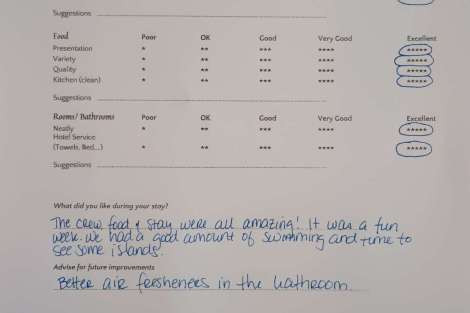 Suggestions
Food Poor OK Good Very Good Excellent
Presentation * ** *** **** *****
Variety * ** *** **** *****
Quality * ** *** **** *****
Kitchen (clean) * ** *** **** *****
Suggestions
Rooms/ Bathrooms Poor OK Good Very Good Excellent
Neatly * ** *** **** *****
Hotel Service
(Towels, Bed...) * ** *** **** *****
Suggestions
What did you like during your stay?
The crew, food & stay were all amazing! It was a fun
week. We had a good amount of swimming and time to
see some islands.
Advise for future improvements
Better air fersheners in the bathroom